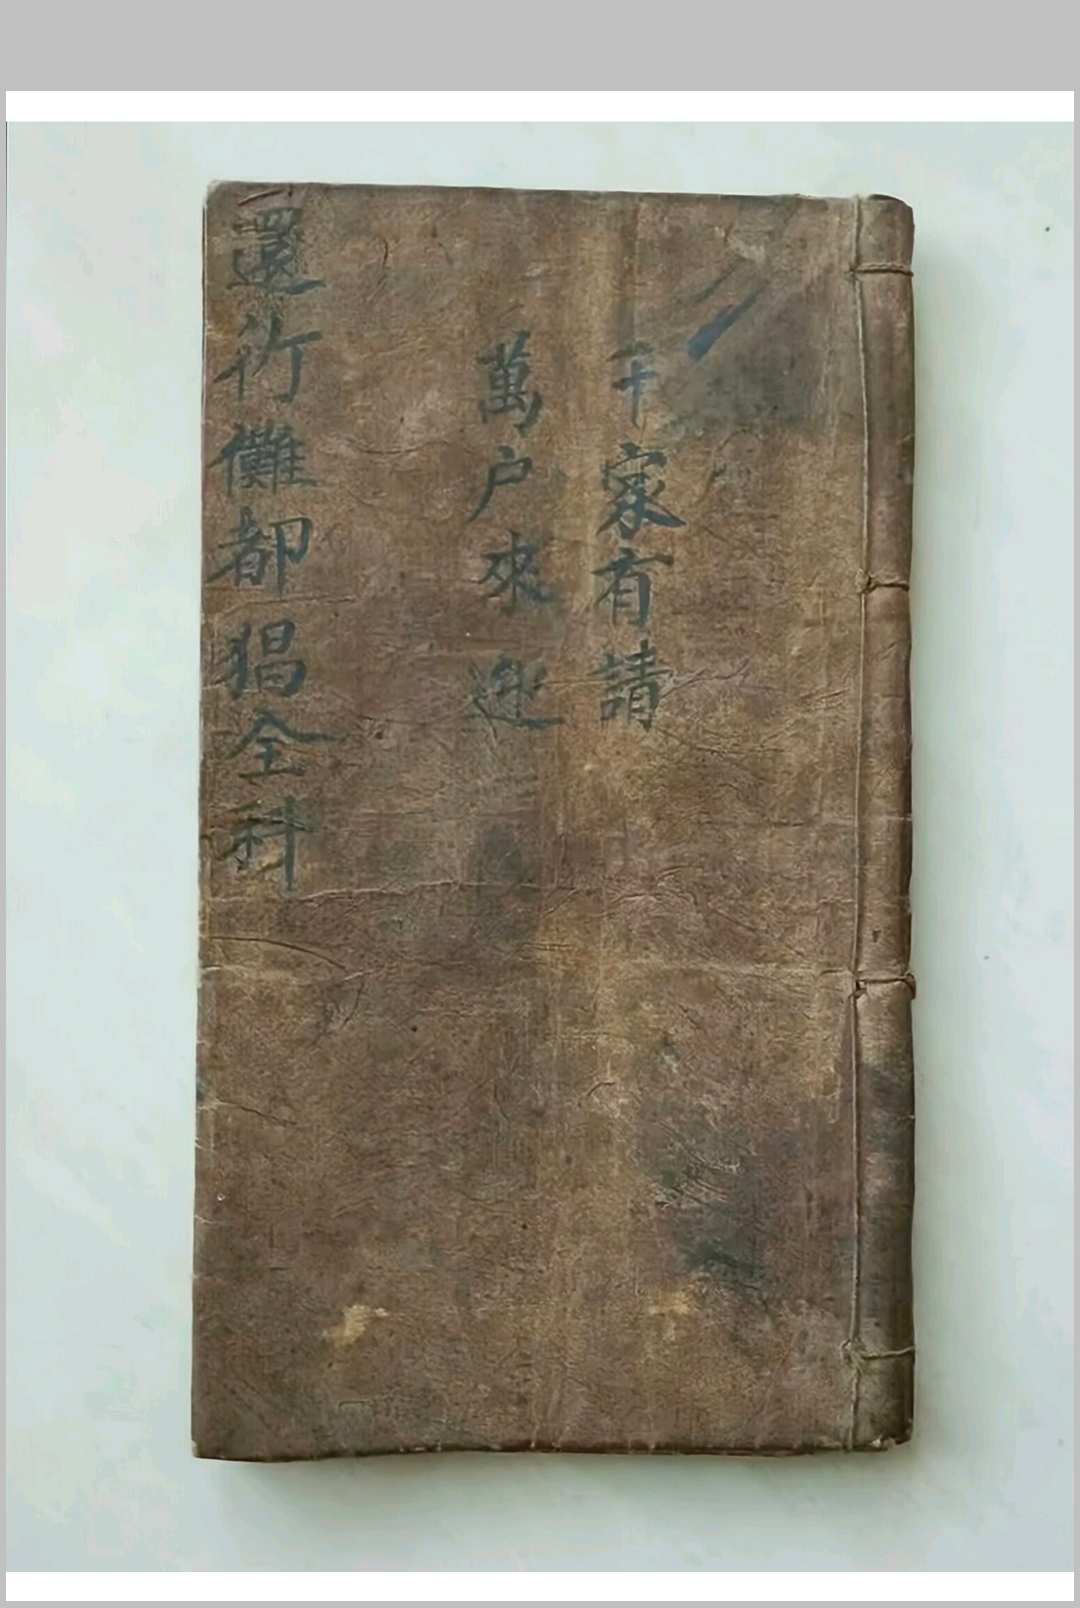 千家有請
萬户來迎
還行儺都猖全科